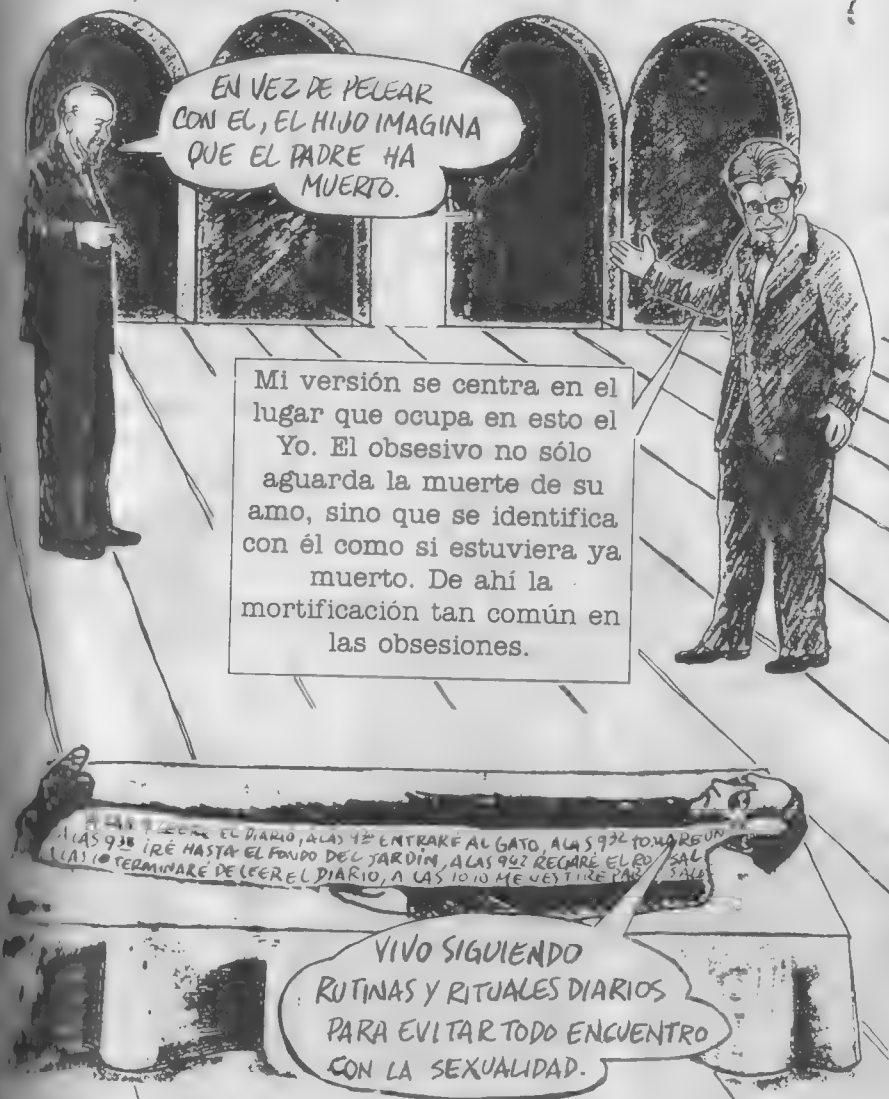 EN VEZ DE PELEAR
CON EL, EL HIJO IMAGINA
QUE EL PADRE HA
MUERTO.
Mi versión se centra en el
lugar que ocupa en esto el
Yo. El obsesivo no sólo
aguarda la muerte de su
amo, sino que se identifica
con él como si estuviera ya
muerto. De ahí la
mortificación tan común en
las obsesiones.
EL DIARIO, A LAS 9 30 ENTRARÉ AL GATO, A LAS 9 32 TOMARÉ UN
A LAS 9 38 IRÉ HASTA EL FONDO DEL JARDÍN, A LAS 9 42 REGARÉ EL ROSAL
A LAS 10 TERMINARÉ DE LEER EL DIARIO, A LAS 10 10 ME VESTIRÉ PARA
VIVO SIGUIENDO
RUTINAS Y RITUALES DIARIOS
PARA EVITAR TODO ENCUENTRO
CON LA SEXUALIDAD.